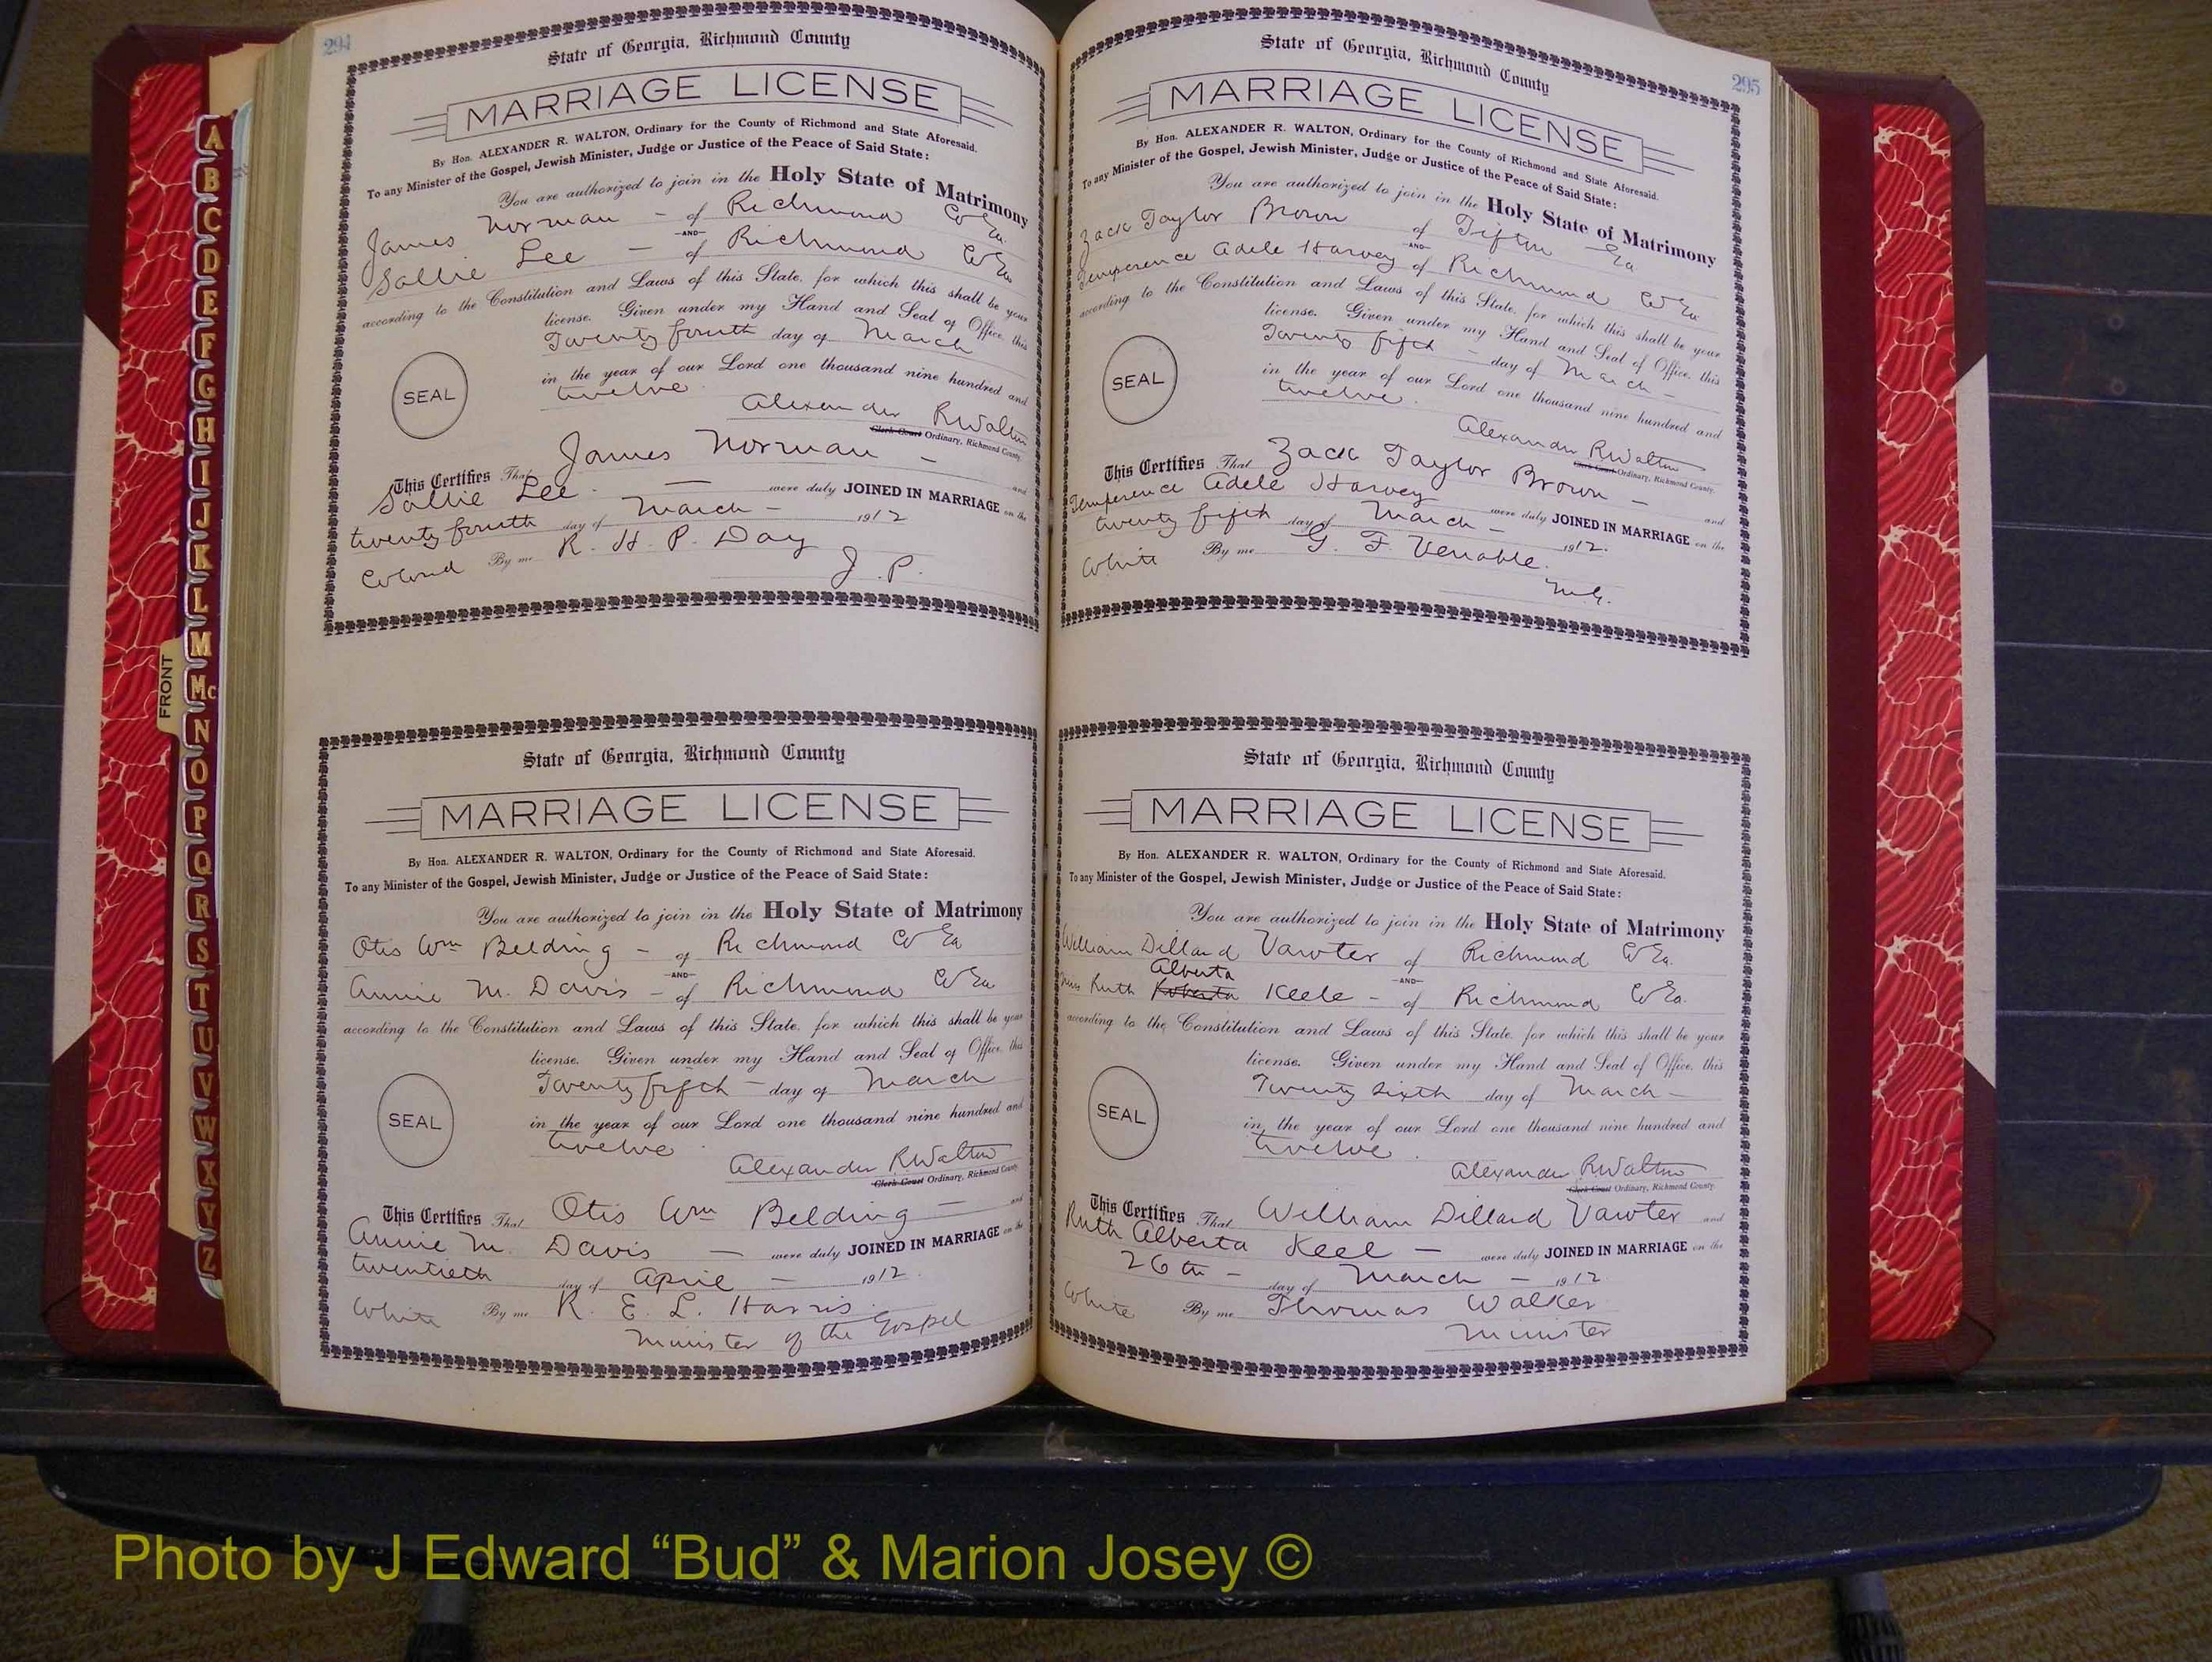 294
State of Georgia, Richmond County
MARRIAGE LICENSE
By Hon. ALEXANDER R. WALTON, Ordinary for the County of Richmond and State Aforesaid.
To any Minister of the Gospel, Jewish Minister, Judge or Justice of the Peace of Said State:
You are authorized to join in the Holy State of Matrimony
James Norman - of Richmond Co Ga.
-AND-
Sallie Lee - of Richmond Co Ga
according to the Constitution and Laws of this State, for which this shall be your
license. Given under my Hand and Seal of Office, this
Twenty fourth day of March
in the year of our Lord one thousand nine hundred and
twelve.
SEAL
Alexander R Walton
Clerk Court Ordinary, Richmond County.
This Certifies That James Norman - and
Sallie Lee - were duly JOINED IN MARRIAGE on the
twenty fourth day of March - 1912
Colored By me R. H. P. Day
J.P.
State of Georgia, Richmond County
MARRIAGE LICENSE
By Hon. ALEXANDER R. WALTON, Ordinary for the County of Richmond and State Aforesaid.
To any Minister of the Gospel, Jewish Minister, Judge or Justice of the Peace of Said State:
You are authorized to join in the Holy State of Matrimony
Otis Wm Belding - of Richmond Co Ga
-AND-
Annie M. Davis - of Richmond Co Ga
according to the Constitution and Laws of this State, for which this shall be your
license. Given under my Hand and Seal of Office, this
Twenty fifth - day of March
in the year of our Lord one thousand nine hundred and
twelve.
SEAL
Alexander R Walton
Clerk Court Ordinary, Richmond County
This Certifies That Otis Wm Belding - and
Annie M. Davis - were duly JOINED IN MARRIAGE on the
twentieth day of April - 1912.
White By me R. E. L. Harris.
Minister of the Gospel
295
State of Georgia, Richmond County
MARRIAGE LICENSE
By Hon. ALEXANDER R. WALTON, Ordinary for the County of Richmond and State Aforesaid.
To any Minister of the Gospel, Jewish Minister, Judge or Justice of the Peace of Said State:
You are authorized to join in the Holy State of Matrimony
Zack Taylor Brown of Tifton Ga
-AND-
Temperence Adele Harvey of Richmond Co Ga
according to the Constitution and Laws of this State, for which this shall be your
license. Given under my Hand and Seal of Office, this
Twenty fifth - day of March -
in the year of our Lord one thousand nine hundred and
twelve.
SEAL
Alexander R Walton
Clerk Court Ordinary, Richmond County.
This Certifies That Zack Taylor Brown - and
Temperence Adele Harvey were duly JOINED IN MARRIAGE on the
twenty fifth day of March - 1912.
White By me G. F. Venable.
M.G.
State of Georgia, Richmond County
MARRIAGE LICENSE
By Hon. ALEXANDER R. WALTON, Ordinary for the County of Richmond and State Aforesaid.
To any Minister of the Gospel, Jewish Minister, Judge or Justice of the Peace of Said State:
You are authorized to join in the Holy State of Matrimony
William Dillard Vawter of Richmond Co Ga.
Alberta
-AND-
Miss Ruth Roberta Keele - of Richmond Co Ga.
according to the Constitution and Laws of this State, for which this shall be your
license. Given under my Hand and Seal of Office, this
Twenty sixth day of March -
in the year of our Lord one thousand nine hundred and
twelve.
SEAL
Alexander R Walton
Clerk Court Ordinary, Richmond County.
This Certifies That William Dillard Vawter and
Ruth Alberta Keel - were duly JOINED IN MARRIAGE on the
26th - day of March - 1912
White By me Thomas Walker
Minister
FRONT
A
B
C
D
E
F
G
H
I
J
K
L
M
Mc
N
O
P
Q
R
S
T
U
V
W
X
Y
Z
Photo by J Edward “Bud” & Marion Josey ©